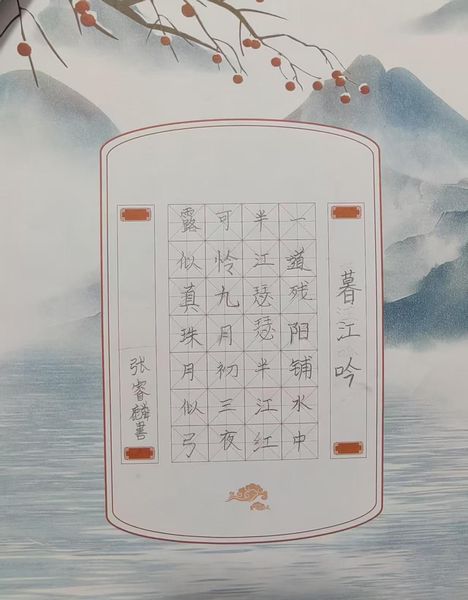 暮江吟
一道残阳铺水中
半江瑟瑟半江红
可怜九月初三夜
露似真珠月似弓
张睿麟书